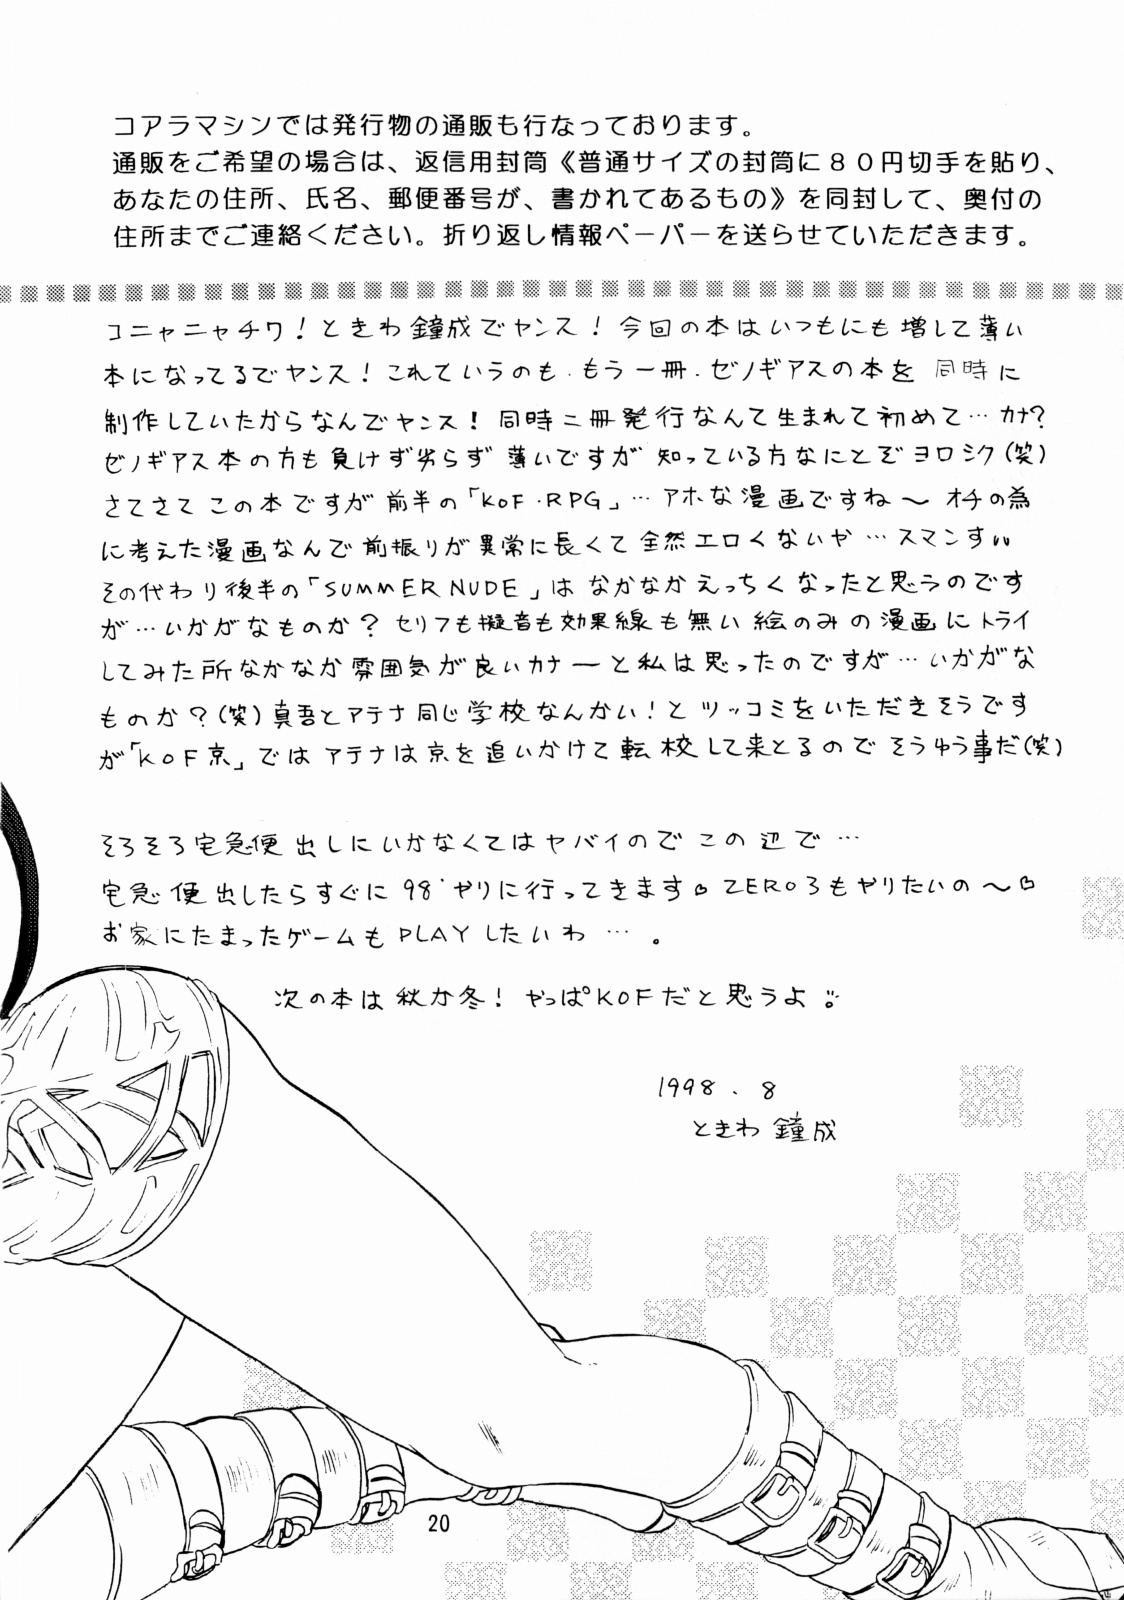 コアラマシンでは発行物の通販も行なっております。
通販をご希望の場合は、返信用封筒《普通サイズの封筒に８０円切手を貼り、
あなたの住所、氏名、郵便番号が、書かれてあるもの》を同封して、奥付の
住所までご連絡ください。折り返し情報ペーパーを送らせていただきます。
コニャニャチワ！ときわ鐘成でヤンス！今回の本はいつもにも増して薄い
本になってるでヤンス！これていうのも．もう一冊．ゼノギアスの本を 同時に
制作していたからなんでヤンス！同時二冊発行なんて生まれて初めて…カナ？
ゼノギアス本の方も負けず劣らず薄いですが知っている方なにとぞヨロシク（笑）
さてさてこの本ですが前半の「KOF・RPG」…アホな漫画ですね〜オチの為
に考えた漫画なんで前振りが異常に長くて全然エロくないや…スマンすい
その代わり後半の「SUMMER NUDE」はなかなかえっちくなったと思うのです
が…いかがなものか？セリフも擬音も効果線も無い絵のみの漫画にトライ
してみた所なかなか雰囲気が良いカナーと私は思ったのですが…いかがな
ものか？（笑）真吾とアテナ同じ学校なんかい！とツッコミをいただきそうです
が「KOF京」ではアテナは京を追いかけて転校して来とるのでそうゆう事だ（笑）
そろそろ宅急便出しにいかなくてはヤバイのでこの辺で…
宅急便出したらすぐに98'やりに行ってきます♡ZERO3もやりたいの〜♡
お家にたまったゲームもPLAYしたいわ…。
次の本は秋か冬！やっぱKOFだと思うよ
1998．8
ときわ鐘成
20